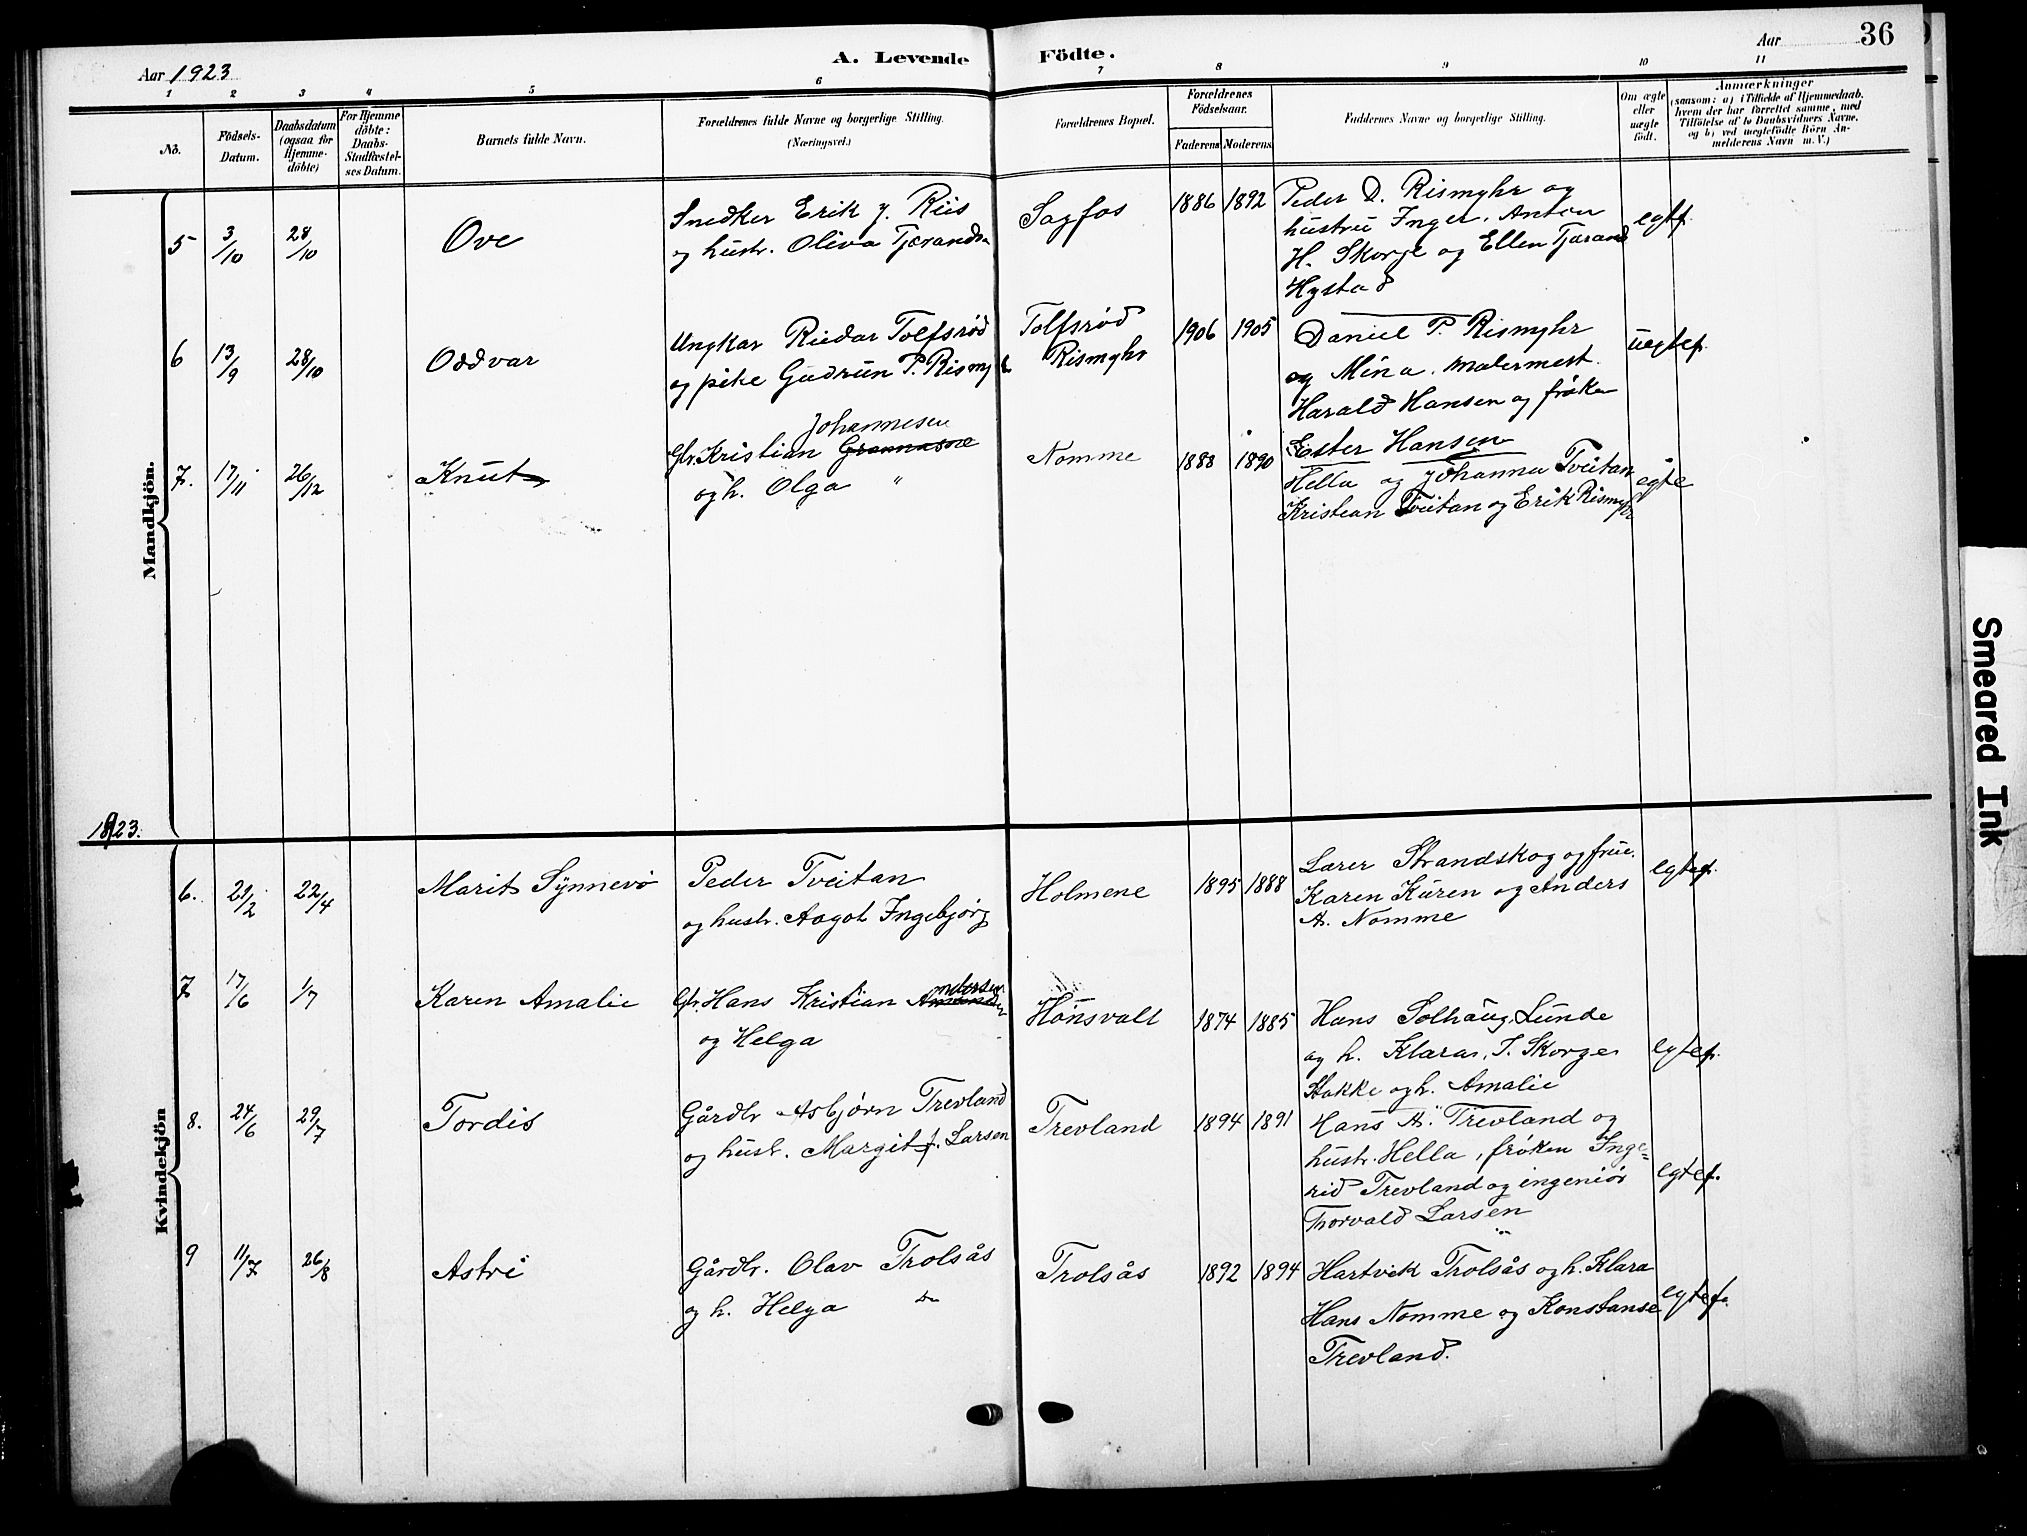 36
A. Levende Födte.
Aar 1923
Aar
1 2 3 4 5 6 7 8 9 10 11
No.
Födsels-Datum.
Daabsdatum (ogsaa for Hjemme-döbte)
For Hjemme döbte: Daabs-Stadfæstel-ses Datum.
Barnets fulde Navn.
Forældrenes fulde Navne og borgerlige Stilling.
(Næringsvei.)
Forældrenes Bopæl.
Forældrenes Födselsaar.
Faderens Moderens
Faddernes Navne og borgerlige Stilling.
Om ægte eller uægte födt.
Anmærkninger
(saasom: a) i Tilfælde af Hjemmedaab, hvem der har forrettet samme, med Tilföielse af to Daabsvidners Navne, og b) ved uægtefödte Börn An-melderens Navn m.V.)
Mandkjön.
5 3/10 28/10 Ove
Snedker Erik J. Riis
og hustr. Oliva Tjærands
Sagfos 1886 1892
Peder D. Rismyhr og
hustru Inger, Anton
H. Skorge og Ellen Tjærand
Hystad
egtf.
6 13/9 28/10 Oddvar
Ungkar Riedar Tolfsrød
og pike Gudrun P. Rismyhr
Tolfsrød
Rismyhr
1906 1905
Daniel P. Rismyhr
og Mina. malermest.
Harald Hansen og frøken
Ester Hansen
uegtef.
7. 17/11 26/12 Knut
Johannesen
Gbr. Kristian
og h. Olga "
Nomme 1888 1890
Hella og Johanna Tveitan
Kristian Tveitan og Erik Rismyhr
egte
1923.
Kvindekjön
6. 21/2 22/4 Marit Synnevø
Peder Tveitan
og hustr. Aagot Ingebjørg
Holmene 1895 1888
Lærer Strandskog og frue.
Karen Kuren og Anders
A. Nomme
egtef.
7 17/6 1/7 Karen Amalie
Gbr. Hans Kristian Andersen
og Helga
Hønsvall 1874 1885
Hans Solhaug, Lunde
og h. Klara, T. Skorge
Stokke og h. Amalie
egtef.
8. 24/6 29/7 Tordis
Gårdbr Asbjørn Trevland
og hustr. Margit f. Larsen
Trevland 1894 1891
Hans A. Trevland og
hustr. Hella, frøken Inge-
rid Trevland og ingeniør
Thorvald Larsen
egtef.
9 11/7 26/8 Astri
Gårdbr. Olav Trolsås
og h. Helga "
Trolsås 1892 1894
Hartvik Trolsås og h. Klara
Hans Nomme og Konstanse
Trevland.
egtef.
Smeared Ink